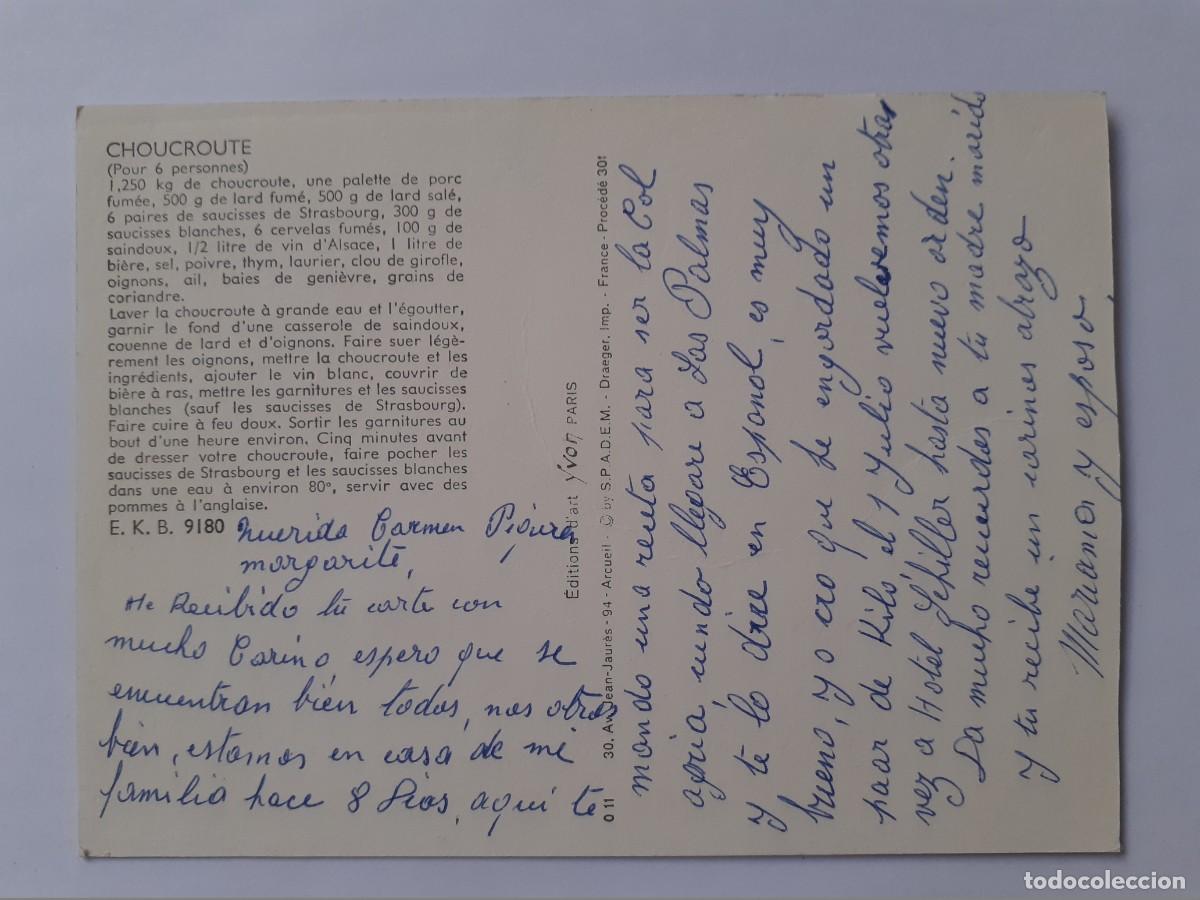 CHOUCROUTE
(Pour 6 personnes)
1,250 kg de choucroute, une palette de porc
fumée, 500 g de lard fumé, 500 g de lard salé,
6 paires de saucisses de Strasbourg, 300 g de
saucisses blanches, 6 cervelas fumés, 100 g de
saindoux, 1/2 litre de vin d'Alsace, 1 litre de
bière, sel, poivre, thym, laurier, clou de girofle,
oignons, ail, baies de genièvre, grains de
coriandre.
Laver la choucroute à grande eau et l'égoutter,
garnir le fond d'une casserole de saindoux,
couenne de lard et d'oignons. Faire suer légè-
rement les oignons, mettre la choucroute et les
ingrédients, ajouter le vin blanc, couvrir de
bière à ras, mettre les garnitures et les saucisses
blanches (sauf les saucisses de Strasbourg).
Faire cuire à feu doux. Sortir les garnitures au
bout d'une heure environ. Cinq minutes avant
de dresser votre choucroute, faire pocher les
saucisses de Strasbourg et les saucisses blanches
dans une eau à environ 80°, servir avec des
pommes à l'anglaise.
E. K. B. 9180
Querida Carmen
margarite,
He Recibido tu carte con
mucho Carino espero que se
encuentran bien todos, nos otros
bien, estamos en casa de mi
familia hace 8 Dias, aqui te
Éditions d'art yvon PARIS
O 11 30. Av. Jean-Jaurès - 94 - Arcueil - © by S.P.A.D.E.M. - Draeger, Imp. - France - Procédé 301
mando una reseta para ser la Col
agria, cundo llegare a Las Palmas
y te lo dire en Espanol, es muy
bueno, y o creo que he engordado un
paar de Kilo el 1 Yulio vuelveremos otra
vez a Hotel Schiller hasta nuevo orden.
Da mucho recuerdos a tu madre marido
y tu recibe un carinos abrazo
Mariano y esposa,
todocoleccion